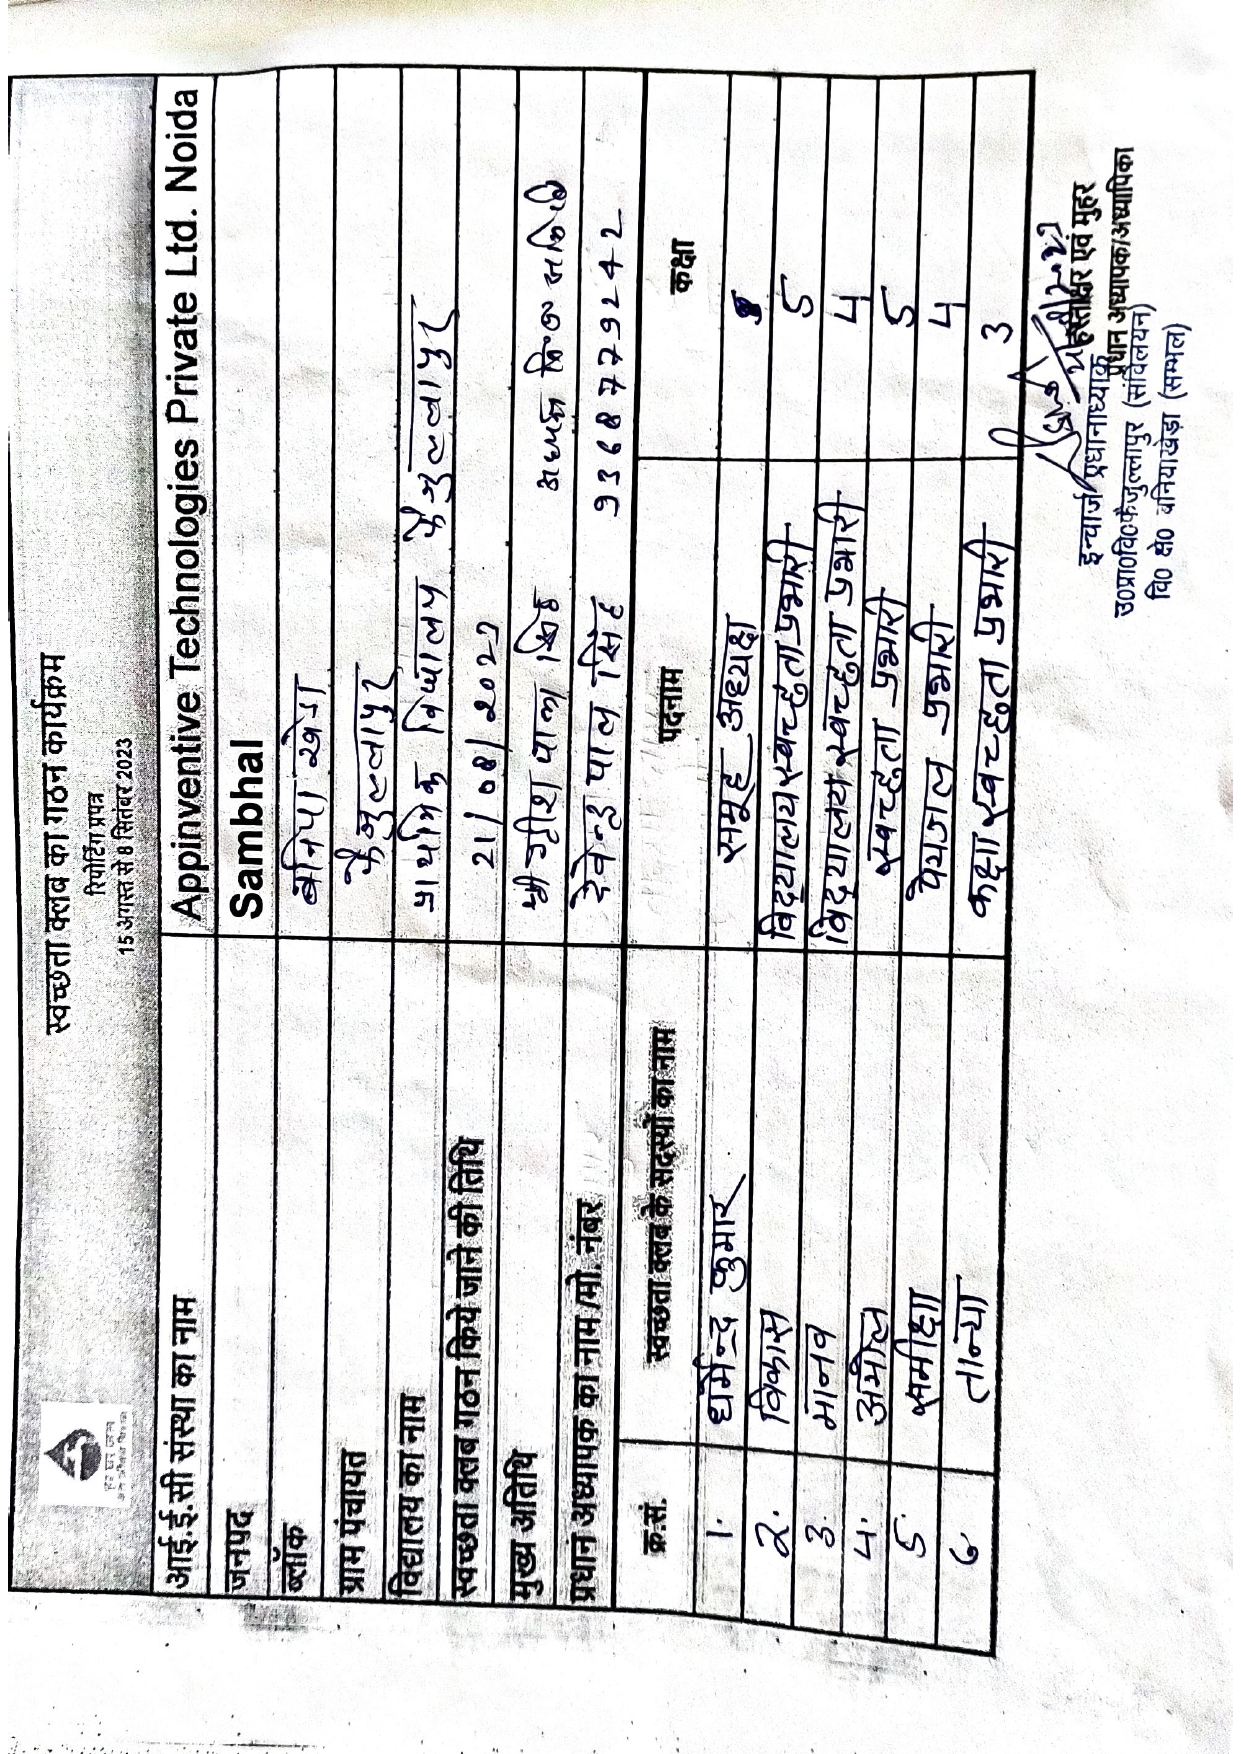 स्वच्छता क्लब का गठन कार्यक्रम
रिपोर्टिंग प्रपत्र
15 अगस्त से 8 सितंबर 2023
आई.ई.सी संस्था का नाम Appinventive Technologies Private Ltd. Noida
जनपद Sambhal
ब्लॉक बनिया खेड़ा
ग्राम पंचायत फैजुल्लापुर
विद्यालय का नाम प्राथमिक विद्यालय फैजुल्लापुर
स्वच्छता क्लब गठन किये जाने की तिथि 21/08/2023
मुख्य अतिथि श्री पाल सिंह अध्यक्ष
प्रधान अध्यापक का नाम /मो. नंबर देवेन्द्र पाल सिंह 9368779242
क्र.सं. स्वच्छता क्लब के सदस्यों का नाम पदनाम कक्षा
1. धर्मेन्द्र कुमार समूह अध्यक्ष 5
2. विकास विद्यालय स्वच्छता प्रभारी 5
3. मानव विद्यालय स्वच्छता प्रभारी 4
4. अमोल स्वच्छता प्रभारी 5
5. समीक्षा पेयजल प्रभारी 4
6 तान्या कक्षा स्वच्छता प्रभारी 3
हस्ताक्षर एवं मुहर
प्रधान अध्यापक/अध्यापिका
इन्चार्ज प्रधानाध्यापक
उ०प्रा०वि०फैजुल्लापुर (संविलयन)
वि० क्षे० बनियाखेड़ा (सम्भल)